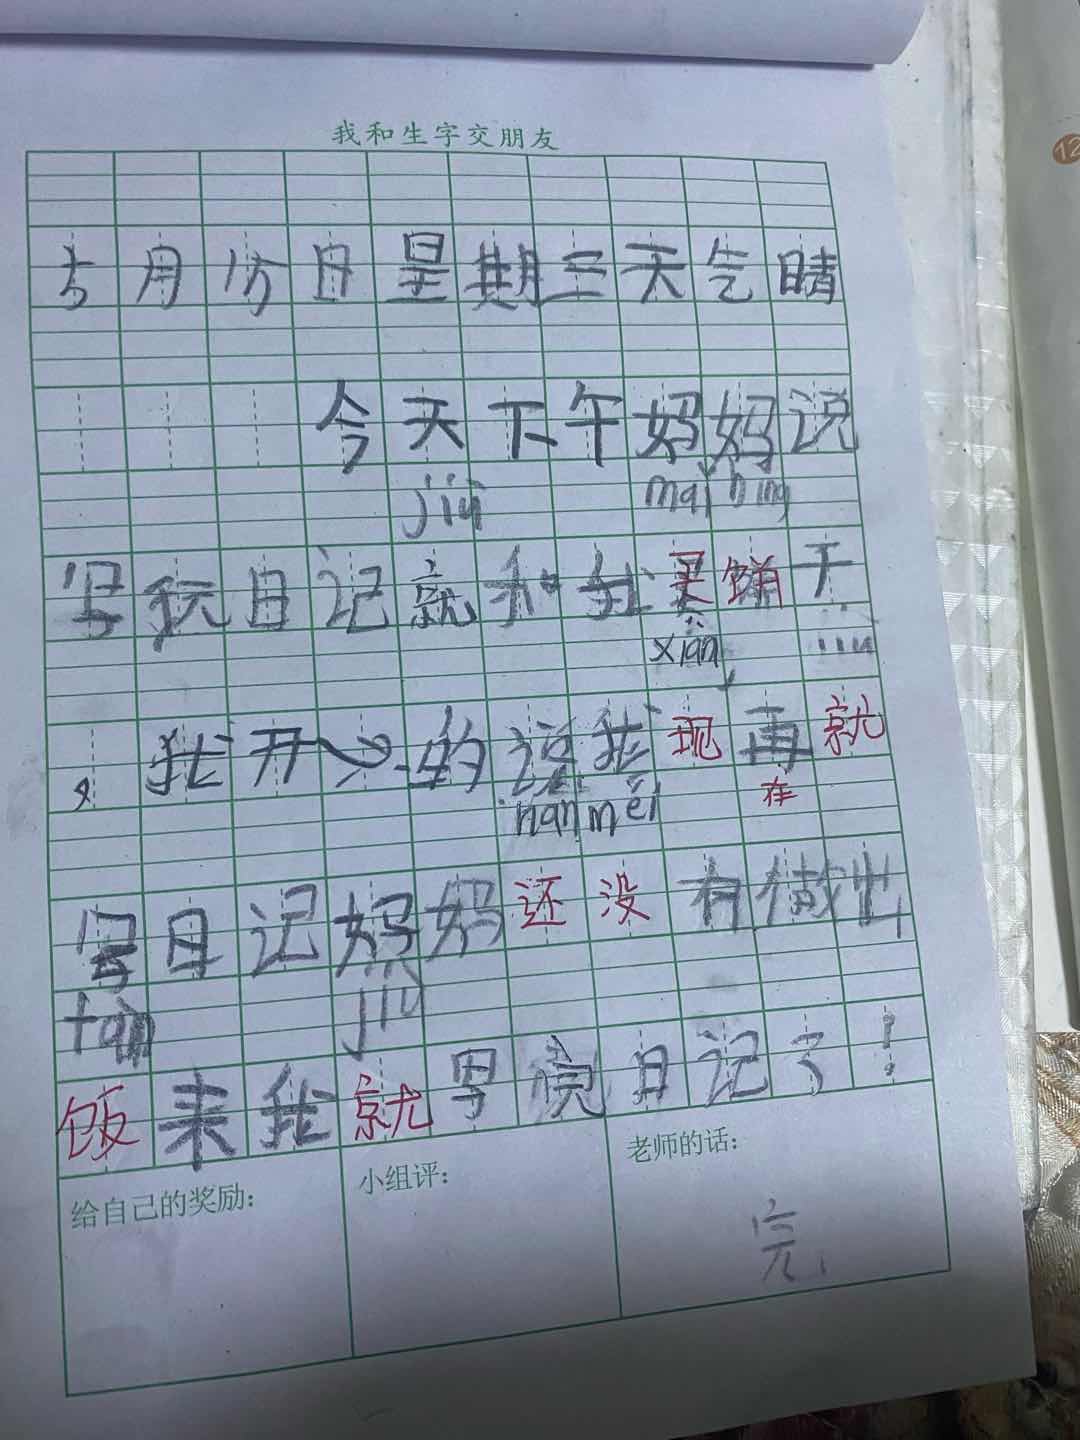 我和生字交朋友
12
五月份日星期三天气晴
今天下午妈妈说
jiù mǎi bǐng
写玩日记就和我买饼干
xiàn jiù
，我开心的说我现再就
在
hán méi
写日记妈妈还没有做出
fàn jiù
饭来我就写完日记了！
给自己的奖励：
小组评：
老师的话：
完